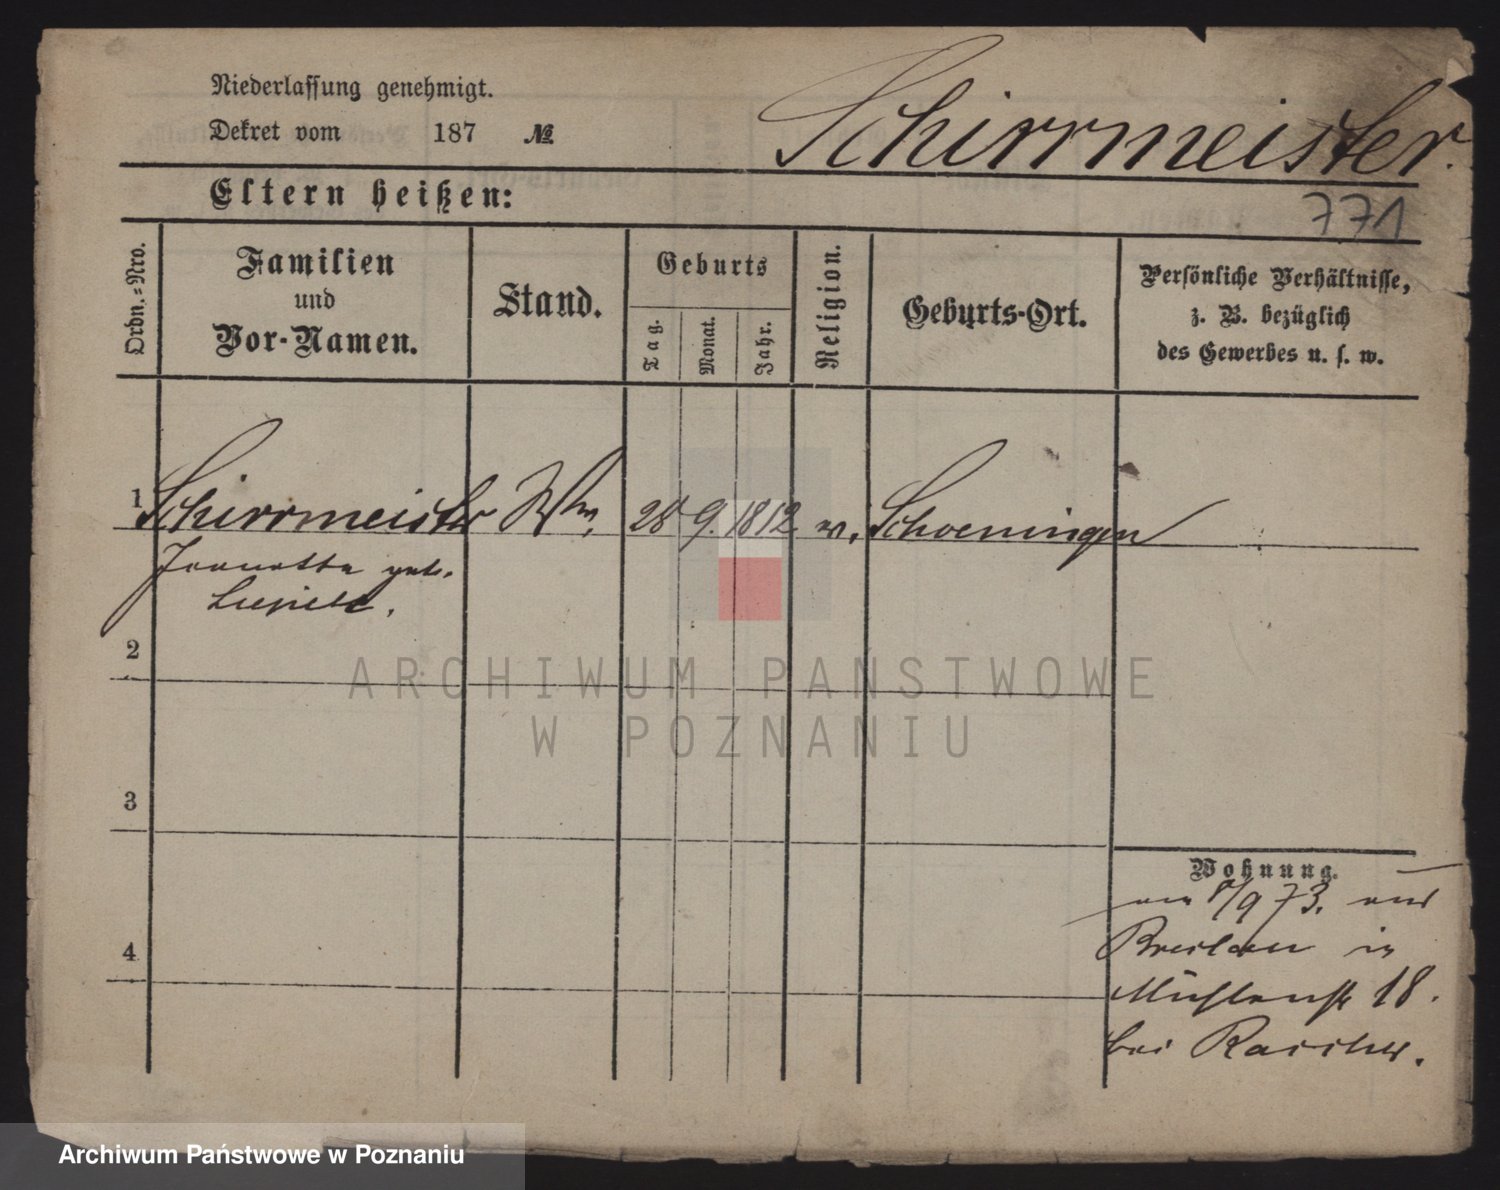 Niederlassung genehmigt.
Dekret vom 187 №
Schirrmeister.
Eltern heißen:
771
Ordn.-Nro.
Familien
und
Vor-Namen.
Stand.
Geburts
Tag.
Monat.
Jahr.
Religion.
Geburts-Ort.
Persönliche Verhältnisse,
z. B. bezüglich
des Gewerbes u. s. w.
1 Schirrmeister Ww. 28 9. 1812 Schoeningen
geb.
2
ARCHIWUM PAŃSTWOWE
W POZNANIU
3
Wohnung.
am 8/9 73. aus
Breslau in
Mühlenstr 18.
4
bei
Archiwum Państwowe w Poznaniu